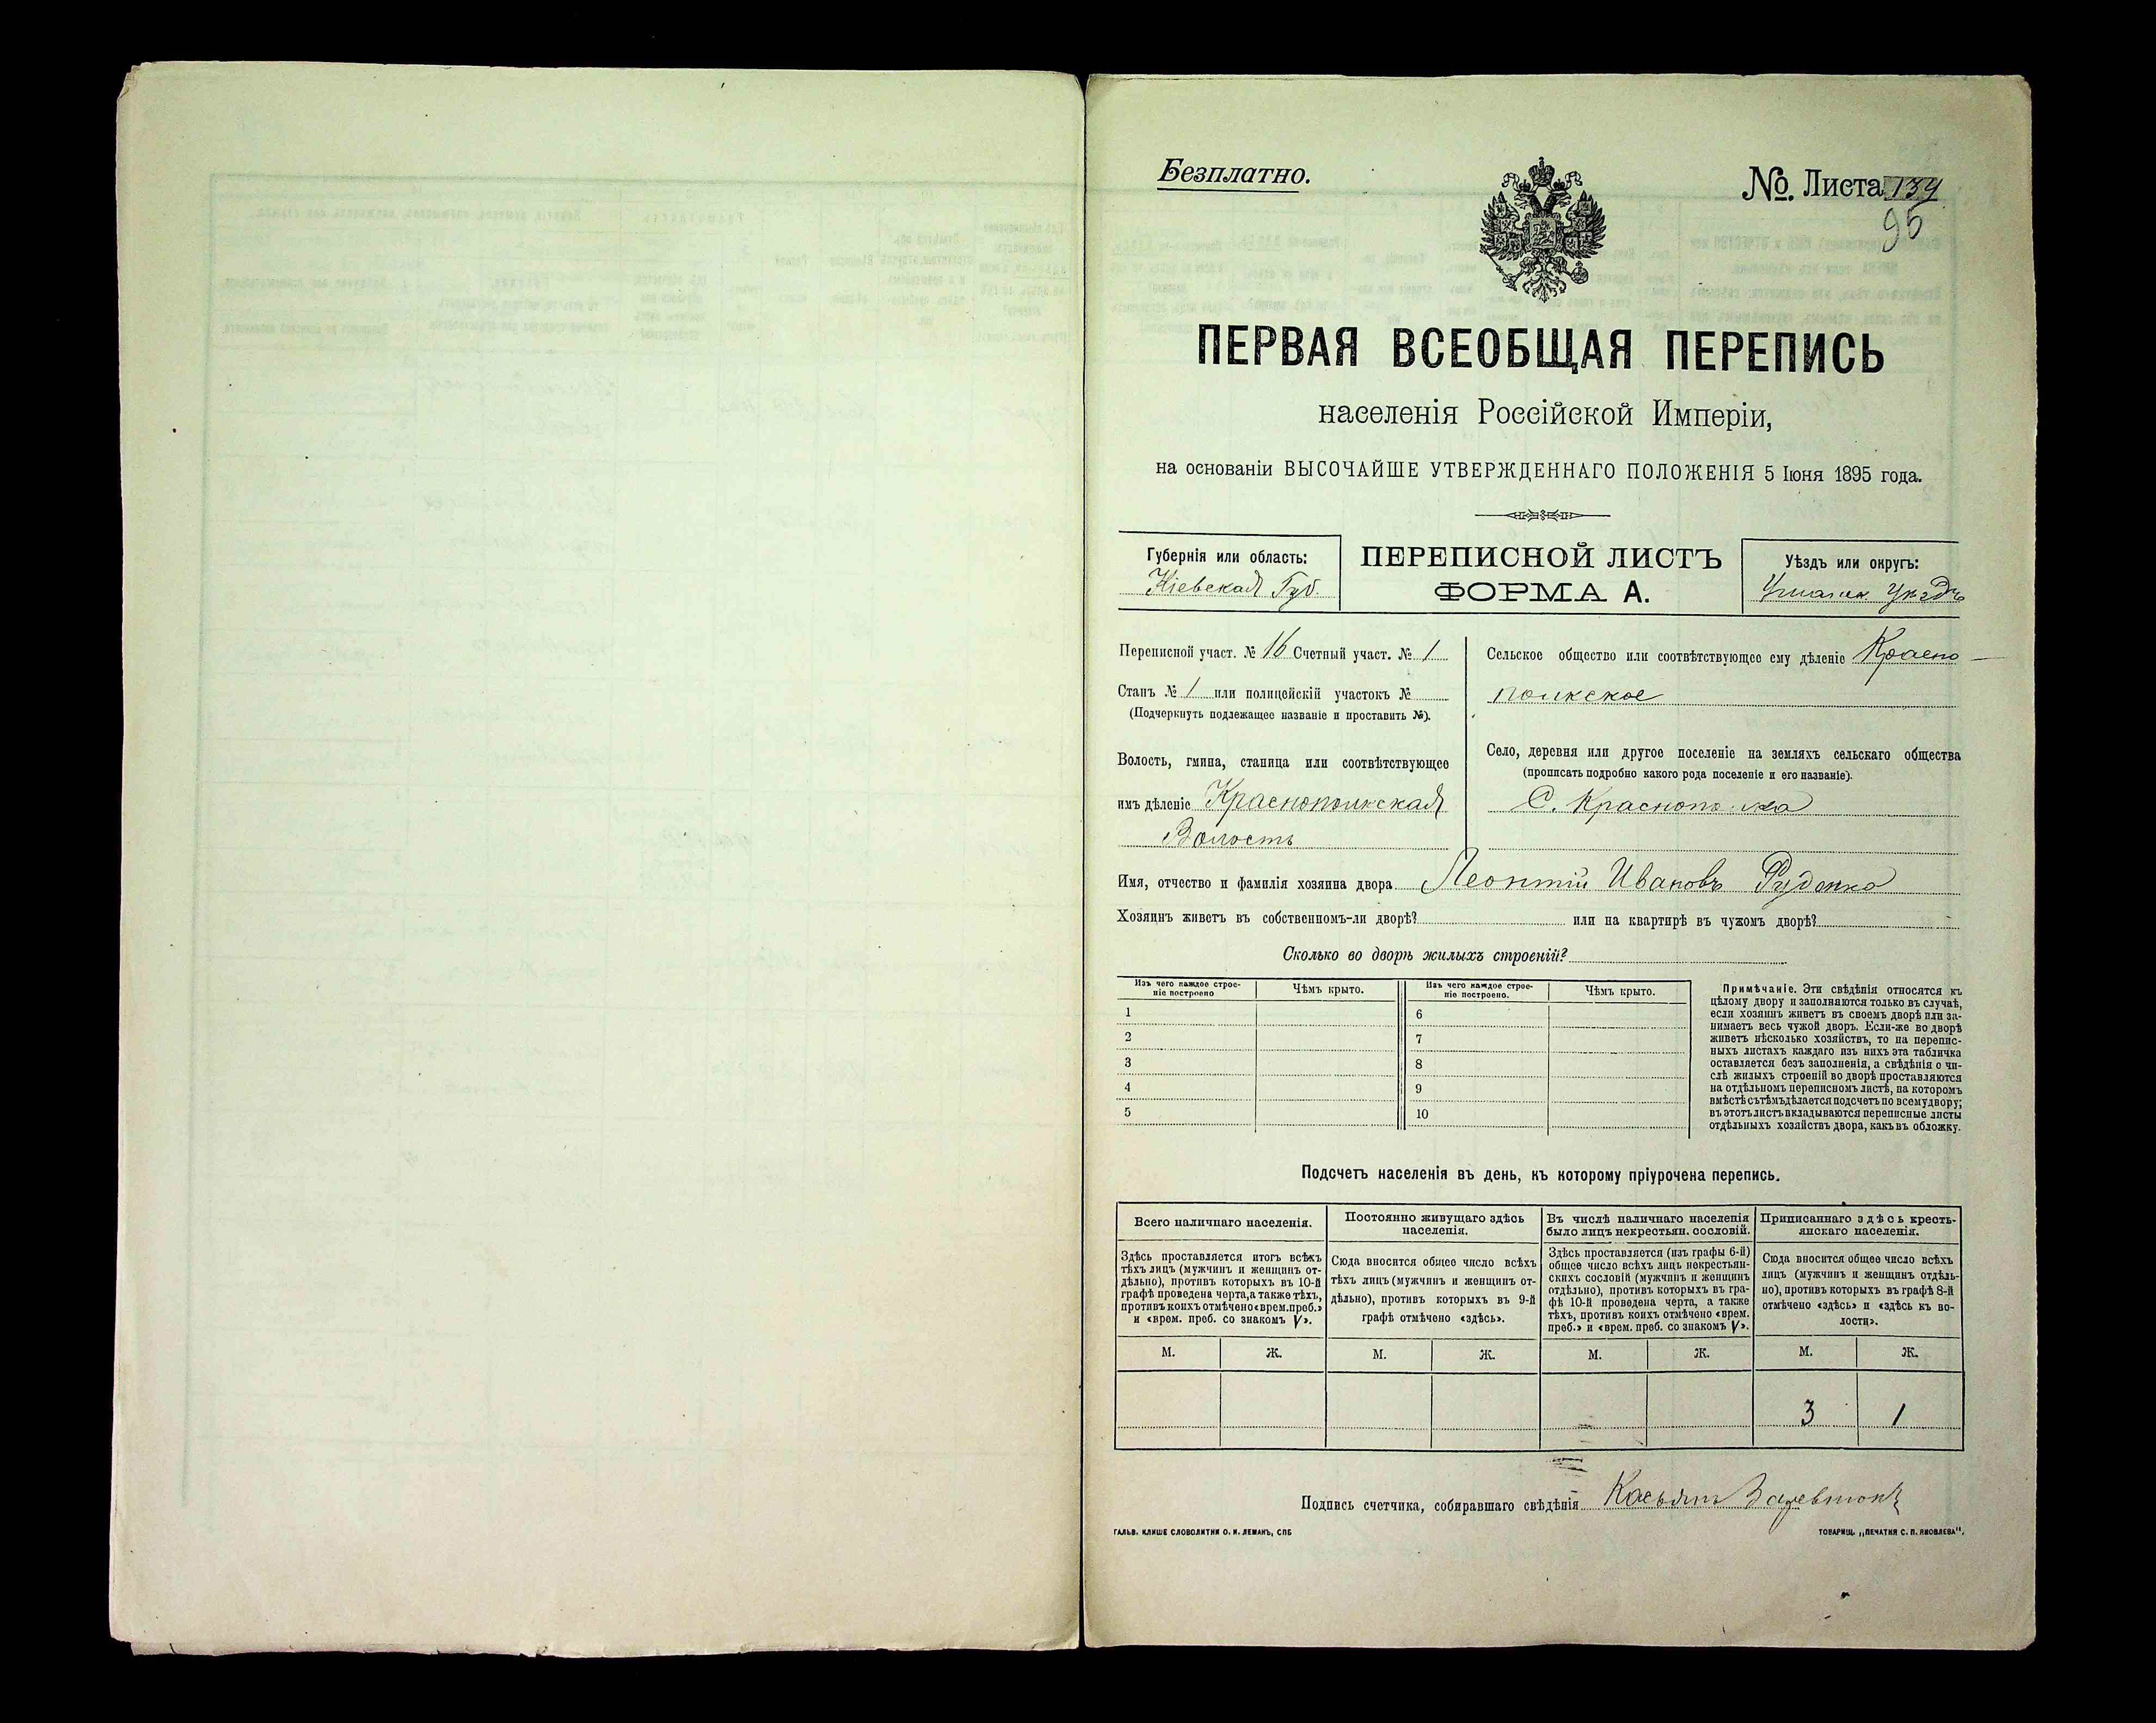 Безплатно.
№. Листа 134
95
ПЕРВАЯ ВСЕОБЩАЯ ПЕРЕПИСЬ
населенія Россійской Имперіи,
на основаніи ВЫСОЧАЙШЕ УТВЕРЖДЕННАГО ПОЛОЖЕНІЯ 5 Іюня 1895 года.
Губернія или область:
Кіевская Губ.
ПЕРЕПИСНОЙ ЛИСТЪ
ФОРМА А.
Уѣздъ или округъ:
Уманск. Уѣздъ
Переписной участ. № 16 Счетный участ. № 1
Станъ № 1 или полицейскій участокъ №
(Подчеркнуть подлежащее названіе и проставить №).
Волость, гмина, станица или соотвѣтствующее
имъ дѣленіе Краснополкская
Волость
Сельское общество или соотвѣтствующее ему дѣленіе Красно-
полкское
Село, деревня или другое поселеніе на земляхъ сельскаго общества
(прописать подробно какого рода поселеніе и его названіе).
С. Краснополка
Имя, отчество и фамилія хозяина двора Леонтій Ивановъ Руденко
Хозяинъ живетъ въ собственномъ-ли дворѣ? или на квартирѣ въ чужомъ дворѣ?
Сколько во дворѣ жилыхъ строеній?
Изъ чего каждое строе-
ніе построено
Чѣмъ крыто.
Изъ чего каждое строе-
ніе построено.
Чѣмъ крыто.
1
2
3
4
5
6
7
8
9
10
Примѣчаніе. Эти свѣдѣнія относятся къ
цѣлому двору и заполняются только въ случаѣ,
если хозяинъ живетъ въ своемъ дворѣ или за-
нимаетъ весь чужой дворъ. Если-же во дворѣ
живетъ нѣсколько хозяйствъ, то на перепис-
ныхъ листахъ каждаго изъ нихъ эта табличка
оставляется безъ заполненія, а свѣдѣнія о чи-
слѣ жилыхъ строеній во дворѣ проставляются
на отдѣльномъ переписномъ листѣ, на которомъ
вмѣстѣ съ тѣмъ дѣлается подсчетъ по всему двору;
въ этотъ листъ вкладываются переписные листы
отдѣльныхъ хозяйствъ двора, какъ въ обложку.
Подсчетъ населенія въ день, къ которому пріурочена перепись.
Всего наличнаго населенія.
Здѣсь проставляется итогъ всѣхъ
тѣхъ лицъ (мужчинъ и женщинъ от-
дѣльно), противъ которыхъ въ 10-й
графѣ проведена черта, а также тѣхъ,
противъ коихъ отмѣчено «врем. преб.»
и «врем. преб. со знакомъ V».
Постоянно живущаго здѣсь
населенія.
Сюда вносится общее число всѣхъ
тѣхъ лицъ (мужчинъ и женщинъ от-
дѣльно), противъ которыхъ въ 9-й
графѣ отмѣчено «здѣсь».
Въ числѣ наличнаго населенія
было лицъ некрестьян. сословій.
Здѣсь проставляется (изъ графы 6-й)
общее число всѣхъ лицъ некрестьян-
скихъ сословій (мужчинъ и женщинъ
отдѣльно), противъ которыхъ въ гра-
фѣ 10-й проведена черта, а также
тѣхъ, противъ коихъ отмѣчено «врем.
преб.» и «врем. преб. со знакомъ V».
Приписаннаго здѣсь кресть-
янскаго населенія.
Сюда вносится общее число всѣхъ
лицъ (мужчинъ и женщинъ отдѣль-
но), противъ которыхъ въ графѣ 8-й
отмѣчено «здѣсь» и «здѣсь къ во-
лости».
М. Ж. М. Ж. М. Ж. М. Ж.
3 1
Подпись счетчика, собиравшаго свѣдѣнія Касьянъ
ГАЛЬВ. КЛИШЕ СЛОВОЛИТНИ О. И. ЛЕМАНЪ, СПБ
ТОВАРИЩ. „ПЕЧАТНЯ С. П. ЯКОВЛЕВА".